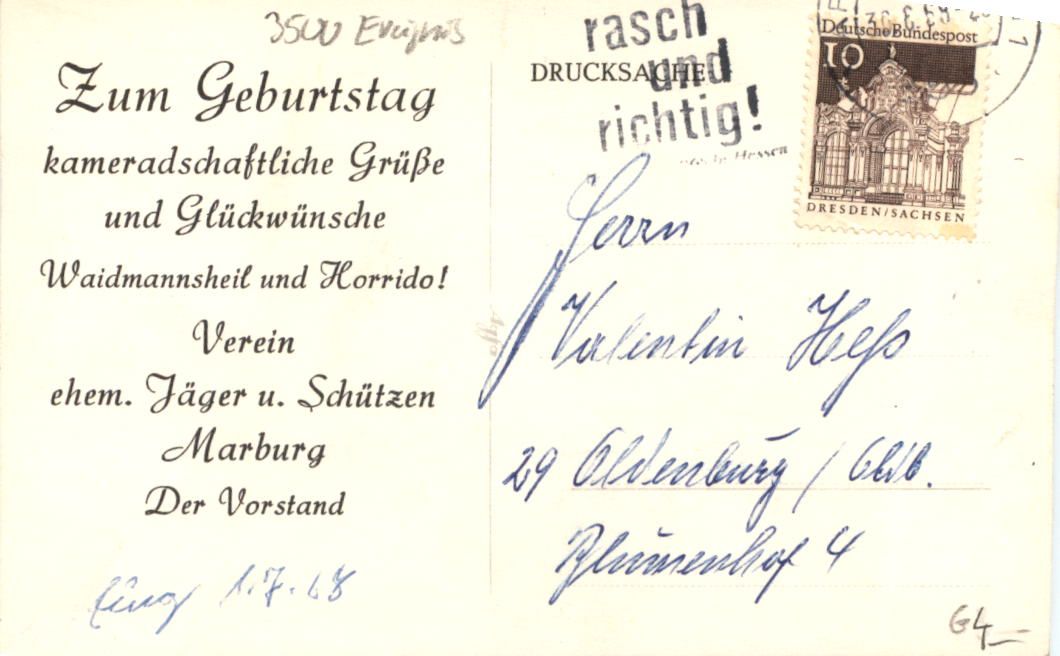 3500 Ereignis
Zum Geburtstag
kameradschaftliche Grüße
und Glückwünsche
Waidmannsheil und Horrido!
Verein
ehem. Jäger u. Schützen
Marburg
Der Vorstand
1.7.68
DRUCKSACHE
rasch
und
richtig!
Hessen
Deutsche Bundespost
10
DRESDEN/SACHSEN
Herrn
Valentin Heß
29 Oldenburg / Oldb.
Blumenhof 4
G4,—